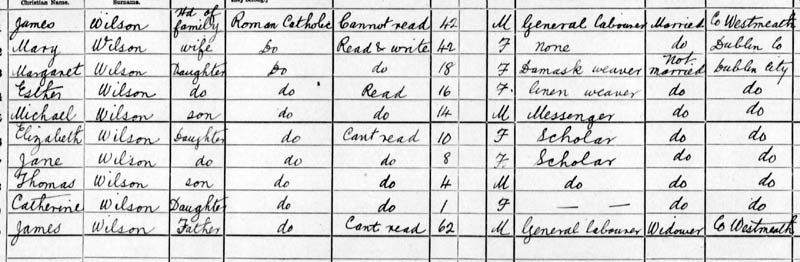 Christian Name. Surname.
James Wilson Hd of family Roman Catholic Cannot read 42 M General Labourer Married Co Westmeath
Mary Wilson wife Do Read & write 42 F None do Dublin Co
Margaret Wilson Daughter Do do 18 F Damask weaver Not married Dublin City
Esther Wilson do do Read 16 F. linen weaver do do
Michael Wilson son do do 14 M Messenger do do
Elizabeth Wilson Daughter do Cant read 10 F Scholar do do
Jane Wilson do do do 8 F. Scholar do do
Thomas Wilson son do do 4 M do do do
Catherine Wilson Daughter do do 1 F — — do do
James Wilson Father do Cant read 62 M General Labourer Widower Co Westmeath